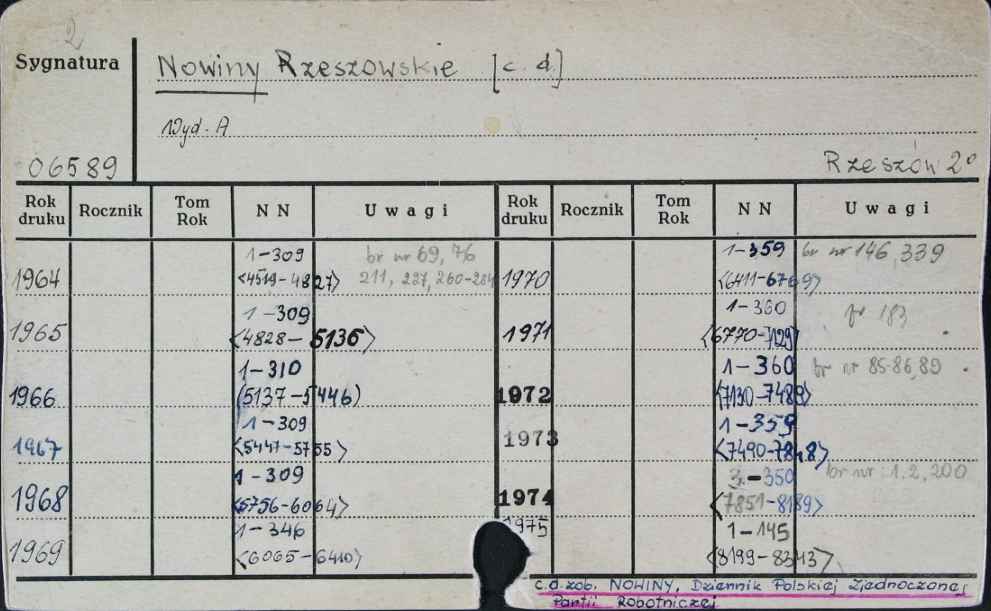 2
Sygnatura
Nowiny Rzeszowskie [c. d.]
Wyd. A
06589
Rzeszów 2°
Rok druku Rocznik Tom Rok NN Uwagi Rok druku Rocznik Tom Rok NN Uwagi
1964 1-309 <4519-4827> br nr 69, 76 211, 227, 260-284
1965 1-309 <4828-5136>
1966 1-310 (5137-5446)
1967 1-309 <5447-5755>
1968 1-309 <5756-6064>
1969 1-346 <6065-6410>
1970 1-359 <6411-6769> br nr 146, 339
1971 1-360 <6770-7129> 183
1972 1-360 <7130-7489> br nr 85-86, 89
1973 1-359 <7490-7848>
1974 3-350 <7851-8189> br nr: 1.2, 200
1975 1-145 <8199-8343>
c.d. zob. NOWINY, Dziennik Polskiej Zjednoczonej
Partii Robotniczej